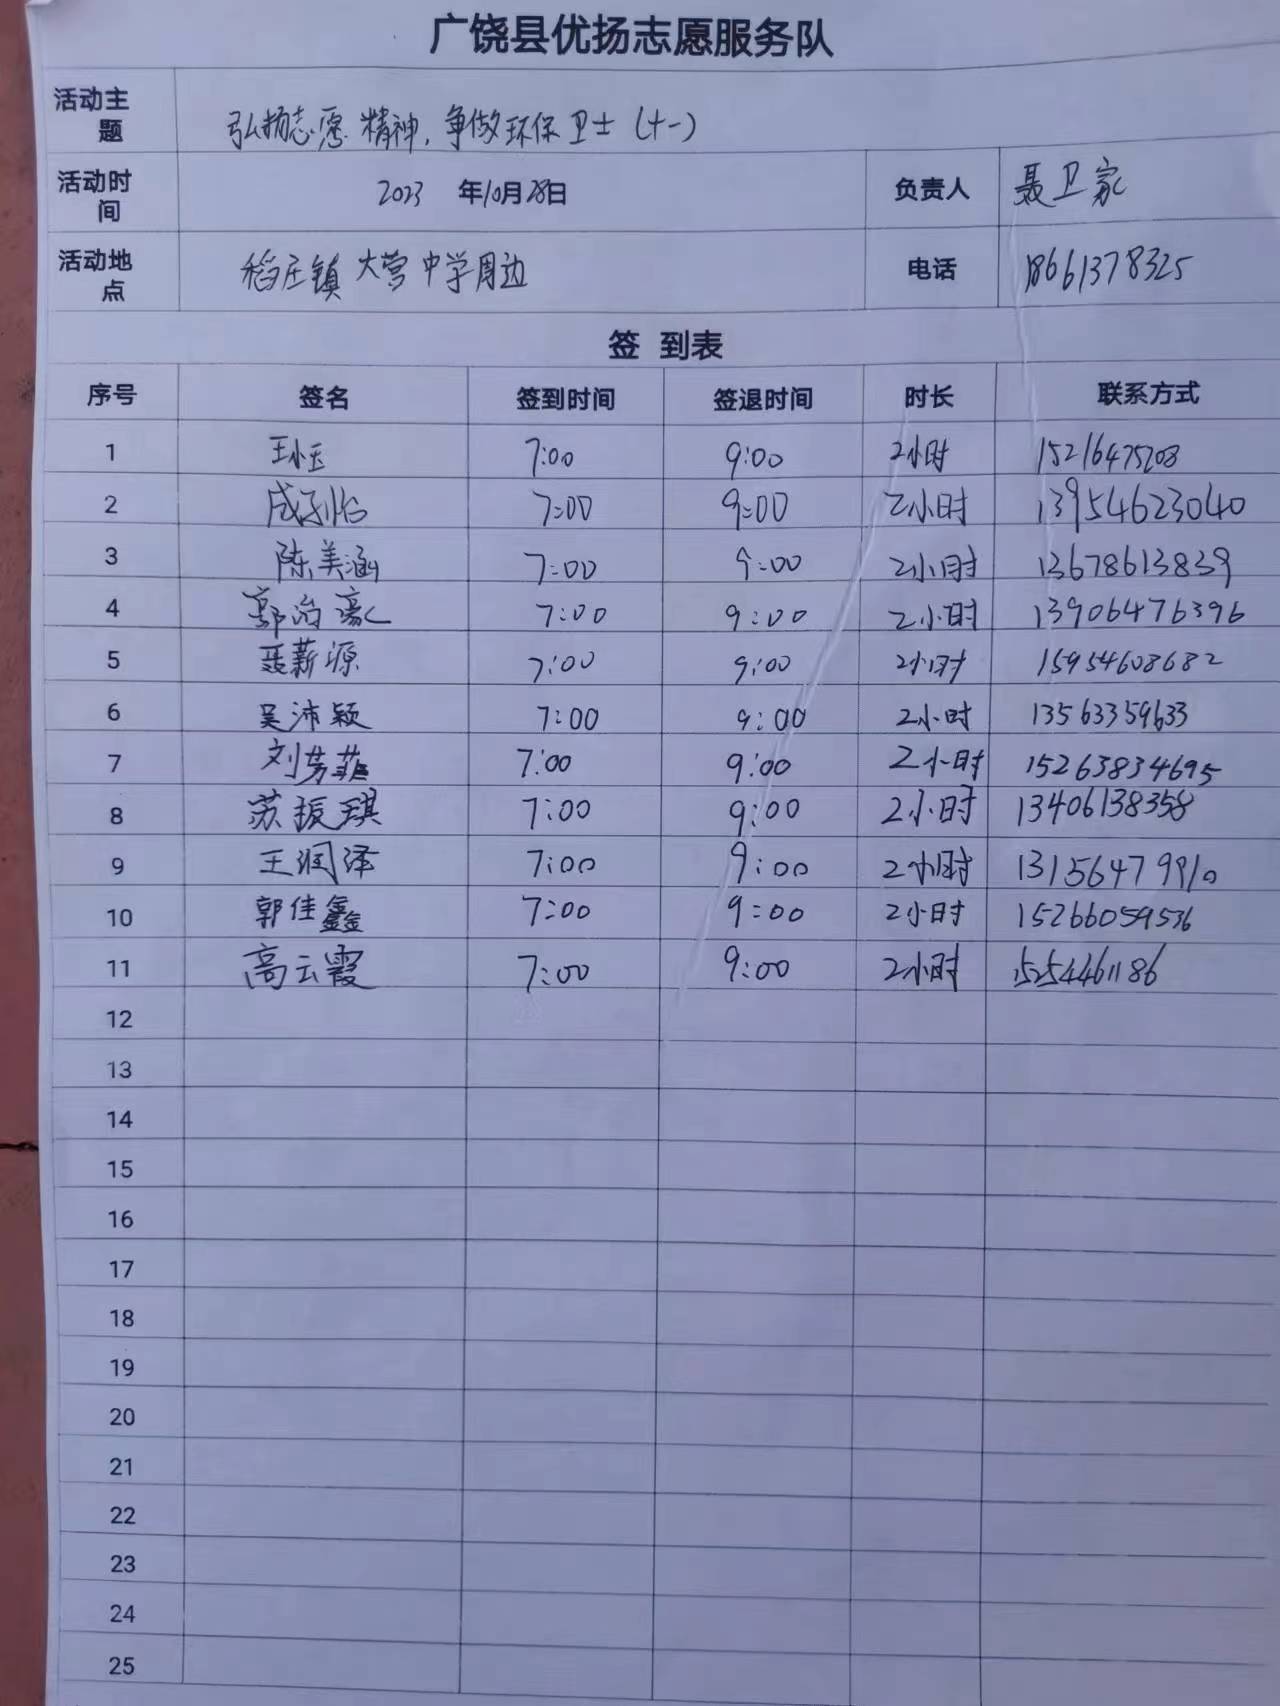 广饶县优扬志愿服务队
活动主题 弘扬志愿精神,争做环保卫士(十一)
活动时间 2023 年10月28日 负责人 聂卫家
活动地点 稻庄镇大营中学周边 电话 18661378325
签 到表
序号 签名 签到时间 签退时间 时长 联系方式
1 王小玉 7:00 9:00 2小时 15216475208
2 成子怡 7:00 9:00 2小时 13954623040
3 陈美涵 7:00 9:00 2小时 13678613839
4 郭治豪 7:00 9:00 2小时 13906476396
5 聂薪源 7:00 9:00 2小时 15954608682
6 吴沛颖 7:00 9:00 2小时 13563359633
7 刘芳菲 7:00 9:00 2小时 15263834695
8 苏振琪 7:00 9:00 2小时 13406138358
9 王润泽 7:00 9:00 2小时 13156479910
10 郭佳鑫 7:00 9:00 2小时 15266059536
11 高云霞 7:00 9:00 2小时 15254461186
12
13
14
15
16
17
18
19
20
21
22
23
24
25